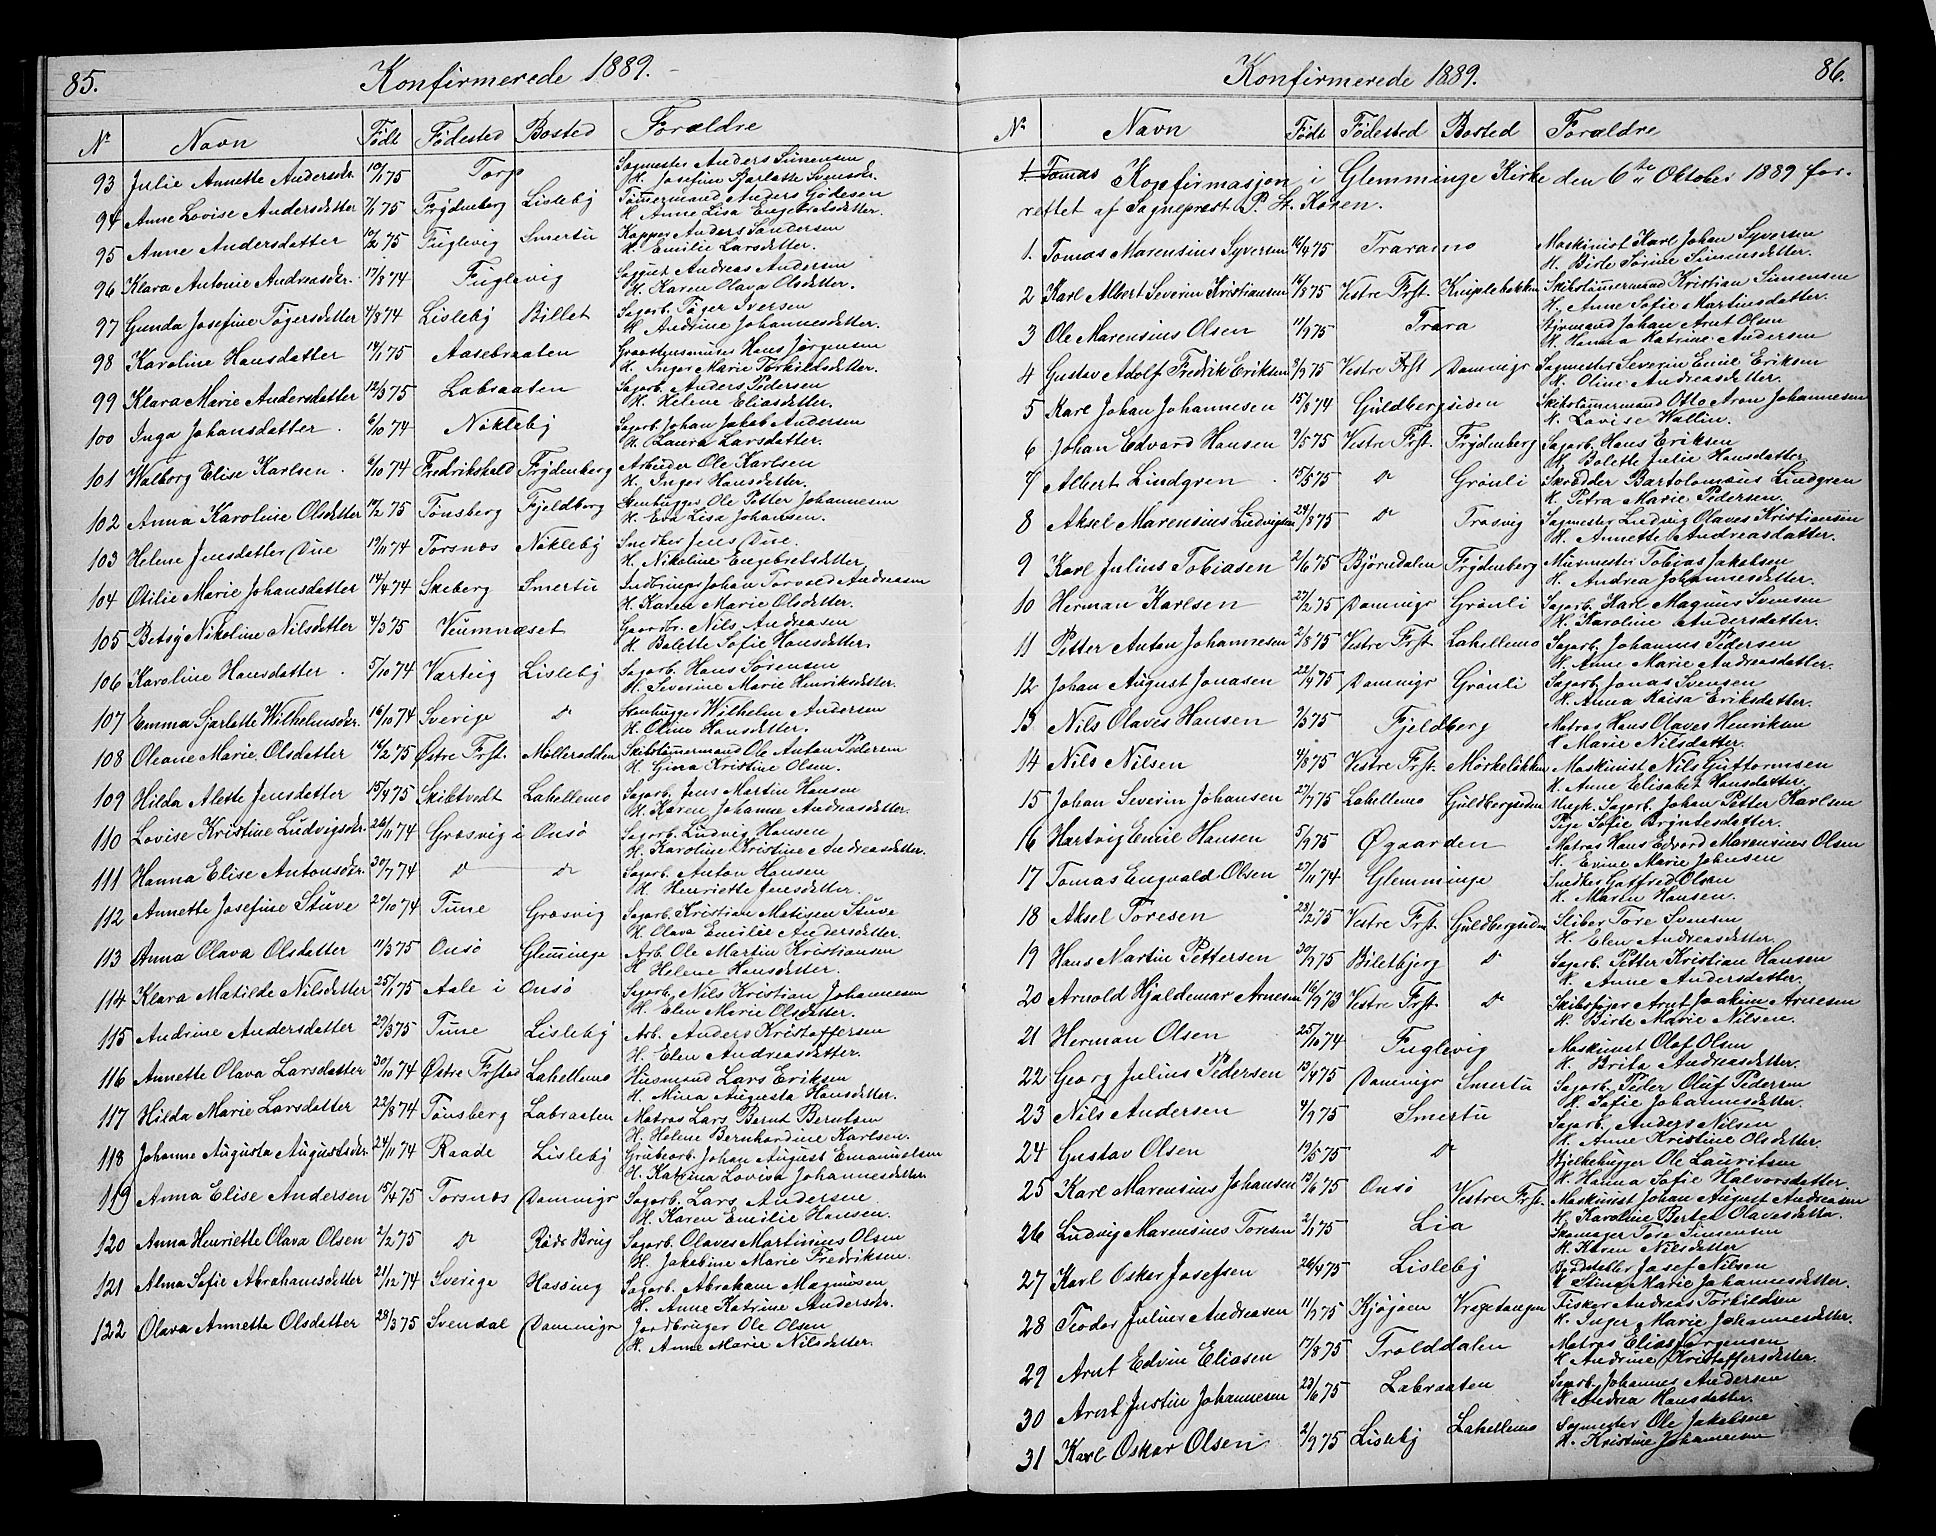 85.
Konfirmerede 1889.
No Navn Født Fødested Bosted Forældre
93 Julie Annette Andersdtr. 19/1 75 Torp Sagmester Anders Simensen
H. Josefine Sjarlotte Svensdr.
94 Anne Lovise Andersdatter 7/1 75 Frydenberg Lisleby Tømmermand Anders Gødesen
H. Anne Lisa Engebretsdatter.
95 Anne Andersdatter 10/2 75 Fuglevig Smertu Kapper Anders Sandersen
H. Emilie Larsdatter.
96 Klara Antonie Andreasdr. 17/8 74 Fuglevig Andreas Andersen
H. Karen Olava Olsdatter.
97 Gunda Josefine Tøgersdatter 4/8 74 Lisleby Billet Sagarb. Tøger Iversen
H. Andrine Johannesdatter.
98 Karoline Hansdatter 14/1 75 Aasebraaten Hans Jørgensen
H. Inger Marie Torkildsdatter.
99 Klara Marie Andersdatter 12/3 75 Labraaten Sagarb. Anders Pedersen
H. Helene Eliasdatter.
100 Inga Johansdatter. 6/10 74 Nøkleby Sagarb. Johan Jakob Andersen
H. Laura Larsdatter.
101 Walborg Elise Karlsen. 6/10 74 Fredrikshald Frydenberg Arbeider Ole Karlsen
H. Inger Hansdatter.
102 Anna Karoline Olsdatter 17/2 75 Tønsberg Fjeldberg Stenhugger Ole Petter Johannesen
H. Eva Lisa Johansen.
103 Helene Jensdatter Due 19/11 74 Torsnæs Nøkleby Snedker Jens Due.
H. Nikoline Engebretsdatter
104 Otilie Marie Johansdatter 14/4 74 Skeberg Smertu Johan Torvald Andreassen
H. Karen Marie Olsdatter.
105 Betsy Nikoline Nilsdatter 4/3 75 Veumnæset Gaardbr. Nils Andreasen
H. Bolette Sofie Hansdatter
106 Karoline Hansdatter. 5/10 74 Varteig Lisleby Sagarb. Hans Sørensen
H. Severine Marie Henriksdatter.
107 Emma Sjarlotte Wilhelmsdr. 16/10 74 Sverige do Stenhugger Wilhelm Andersen
H. Oline Hansdatter.
108 Oleane Marie Olsdatter 14/2 75 Østre Frst. Møllerodden Skibstømmermand Ole Anton Pedersen
H. Gina Kristine Olsen.
109 Hilda Alette Jensdatter 15/4 75 Skibtvedt Lahellemo Sagarb. Jens Martin Hansen
H. Karen Johanne Andreasdatter.
110 Lovise Kristine Ludvigsdr. 26/11 74 Græsvig i Onsø Sagarb. Ludvig Hansen
H. Karoline Kristine Andreasdatter.
111 Hanna Elise Antonsdr. 30/7 74 do do Sagarb. Anton Hansen
H. Henriette Jensdatter.
112 Annette Josefine Stuve 27/10 74 Tune Græsvig Sagarb. Kristian Matisen Stuve
H. Olava Emilie Andersdatter.
113 Anna Olava Olsdatter 11/3 75 Onsø Gleminge Arb. Ole Martin Kristiansen
H. Helene Hansdatter.
114 Klara Matilde Nilsdatter 25/1 75 Aale i Onsø Sagarb. Nils Kristian Johannesen
H. Elen Marie Olsdatter.
115 Andrine Andersdatter 29/3 75 Tune Lisleby Arb. Anders Kristoffersen
H. Elen Andreasdatter.
116 Annette Olava Larsdatter 30/10 74 Østre Frstad Lahellemo Husmand Lars Eriksen
H. Mina Augusta Hansdatter.
117 Hilda Marie Larsdatter 22/8 74 Tønsberg Labraaten Matros Lars Bernt Berntsen
H. Helene Bernhardine Karlsen.
118 Johanne Augusta Augustsdr. 24/11 74 Raade Lisleby Grubearb. Johan August Emanuelsen
H. Katrina Lovisa Johannesdatter
119 Anna Elise Andersen 15/4 75 Torsnæs Damvigr Sagarb. Lars Andersen
H. Karen Emilie Hansen.
120 Anna Henriette Olava Olsen 2/2 75 do Røds Brug Sagarb. Olaves Martinius Olsen
H. Jakobine Marie Fredriksen.
121 Alma Sofie Abrahamsdatter 21/12 74 Sverige Hassing Sagarb. Abraham Magnusen
H. Anne Katrine Andersdr.
122 Olava Annette Olsdatter 23/3 75 Svendal Damvigr Jordbruger Ole Olsen
H. Anne Marie Nilsdatter.
86.
Konfirmerede 1889.
No Navn Født Fødested Bosted Forældre
1. Tomas Konfirmasjon i Glemminge Kirke den 6te Oktober 1889 for-
rettet af Sogneprest P. St. Koren.
1. Tomas Marensius Syversen 16/4 75 Traramo Maskinist Karl Johan Syversen
H. Birte Sørine Simensdatter.
2 Karl Albert Severin Kristiansen 16/8 75 Vestre Frst. Kniplebakken Skibstømmermand Kristian Simensen
H. Anne Sofie Martinsdatter.
3 Ole Marensius Olsen 11/9 75 Trara Styrmand Johan Arnt Olsen
H. Hanna Katrine Andersen
4 Gustav Adolf Fredrik Eriksen 3/9 75 Vestre Frst Damvigr Sagmester Severin Emil Eriksen
H. Oline Andreasdatter.
5 Karl Johan Johannesen 15/8 74 Guldbergsiden Skibstømmermand Otto Aron Johannesen
H. Lovise Wallin.
6 Johan Edvard Hansen 9/5 75 Vestre Frst. Frydenberg Sagarb. Hans Eriksen
H. Bolette Julie Hansdatter
7 Albert Lindgren. 15/5 75 do Grønli Skrædder Bartolomæus Lindgren
H. Petra Marie Pedersen.
8 Aksel Marensius Ludvigsen 24/8 75 do Trosvig Sagmester Ludvig Olaves Kristiansen
H. Annette Andreasdatter.
9 Karl Julius Tobiasen 2/6 75 Bjørndalen Frydenberg Murmester Tobias Jakobsen
H. Andrea Johannesdatter.
10 Herman Karlsen 27/2 75 Damvigr Grønli Sagarb. Karl Magnus Svensen
H. Karoline Andersdatter.
11 Petter Anton Johannesen 2/8 75 Vestre Frst. Lahellemo Sagarb. Johannes Pedersen
H. Anne Marie Andreasdatter.
12 Johan August Jonasen 22/4 75 Damvigr Grønli Sagarb. Jonas Svensen
H. Anna Kaisa Eriksdatter.
13 Nils Olaves Hansen 9/5 75 Fjeldberg Matros Hans Olaves Henriksen
H Marie Nilsdatter.
14 Nils Nilsen 4/8 75 Vestre Frst. Mørkeløkken Maskinist Nils Guttormsen
H. Anne Elisabet Hansdatter,
15 Johan Severin Johansen 27/7 75 Lahellemo Guldbergsiden Ungk. Sagarb. Johan Petter Karlsen
Pige Sofie Bryntesdatter.
16 Hartvig Emil Hansen 5/9 75 Øgaarden Matros Hans Edvard Marensius Olsen
H. Evine Marie Johnsen
17 Tomas Engvald Olsen 27/11 74 Glemminge Snedker Gotfred Olsen
H. Maren Hansen.
18 Aksel Toresen 28/2 75 Vestre Frst. Guldbergsiden Sliber Tore Svensen
H. Elen Andreasdatter.
19 Hans Martin Pettersen 30/9 75 Biletbjerg do Sagarb. Petter Kristian Hansen
H. Anne Andersdatter.
20 Arnold Hjaldemar Arnesen 16/9 73 Vestre Frst. do Arnt Joakim Arnesen
H. Birte Marie Nilsen.
21 Herman Olsen 25/10 74 Fuglevig Maskinist Olaf Olsen
H. Brita Andreasdatter.
22 Georg Julius Pedersen 13/4 75 Damvigr Smertu Sagarb. Peder Oluf Pedersen
H. Sofie Johannesdatter.
23 Nils Andersen 4/9 75 Smertu Sagarb. Anders Nilsen
H. Anne Kristine Olsdatter.
24 Gustav Olsen 19/5 75 do Bjelkehugger Ole Lauritsen
H. Hanna Sofie Halvorsdatter.
25 Karl Marensius Johansen 13/6 75 Onsø Vestre Frst. Maskinist Johan August Andreasen
H. Karoline Bertea Olavesdatter.
26 Ludvig Marensius Toresen 2/1 75 Lia Skomager Tore Simensen
H. Karen Nilsdatter
27 Karl Oskar Josefsen 26/4 75 Lisleby Josef Nilsen
H. Stina Marie Johannesdatter.
28 Teodor Julius Andreasen 11/9 75 Kjøjøen Vragetangen Fisker Andreas Torkildsen
H. Inger Marie Johannesdatter.
29 Arnt Edvin Eliasen 17/8 75 Trolddalen Matros Elias Jørgensen
H Andrine Kristoffersdatter.
30 Arnt Justin Johannesen 23/6 75 Labraaten Sagarb. Johannes Andersen
H Andrea Hansdatter.
31 Karl Oskar Olsen 2/9 75 Lisleby Lahellemo Sagmester Ole Jakobsen
H. Kristine Johannesen